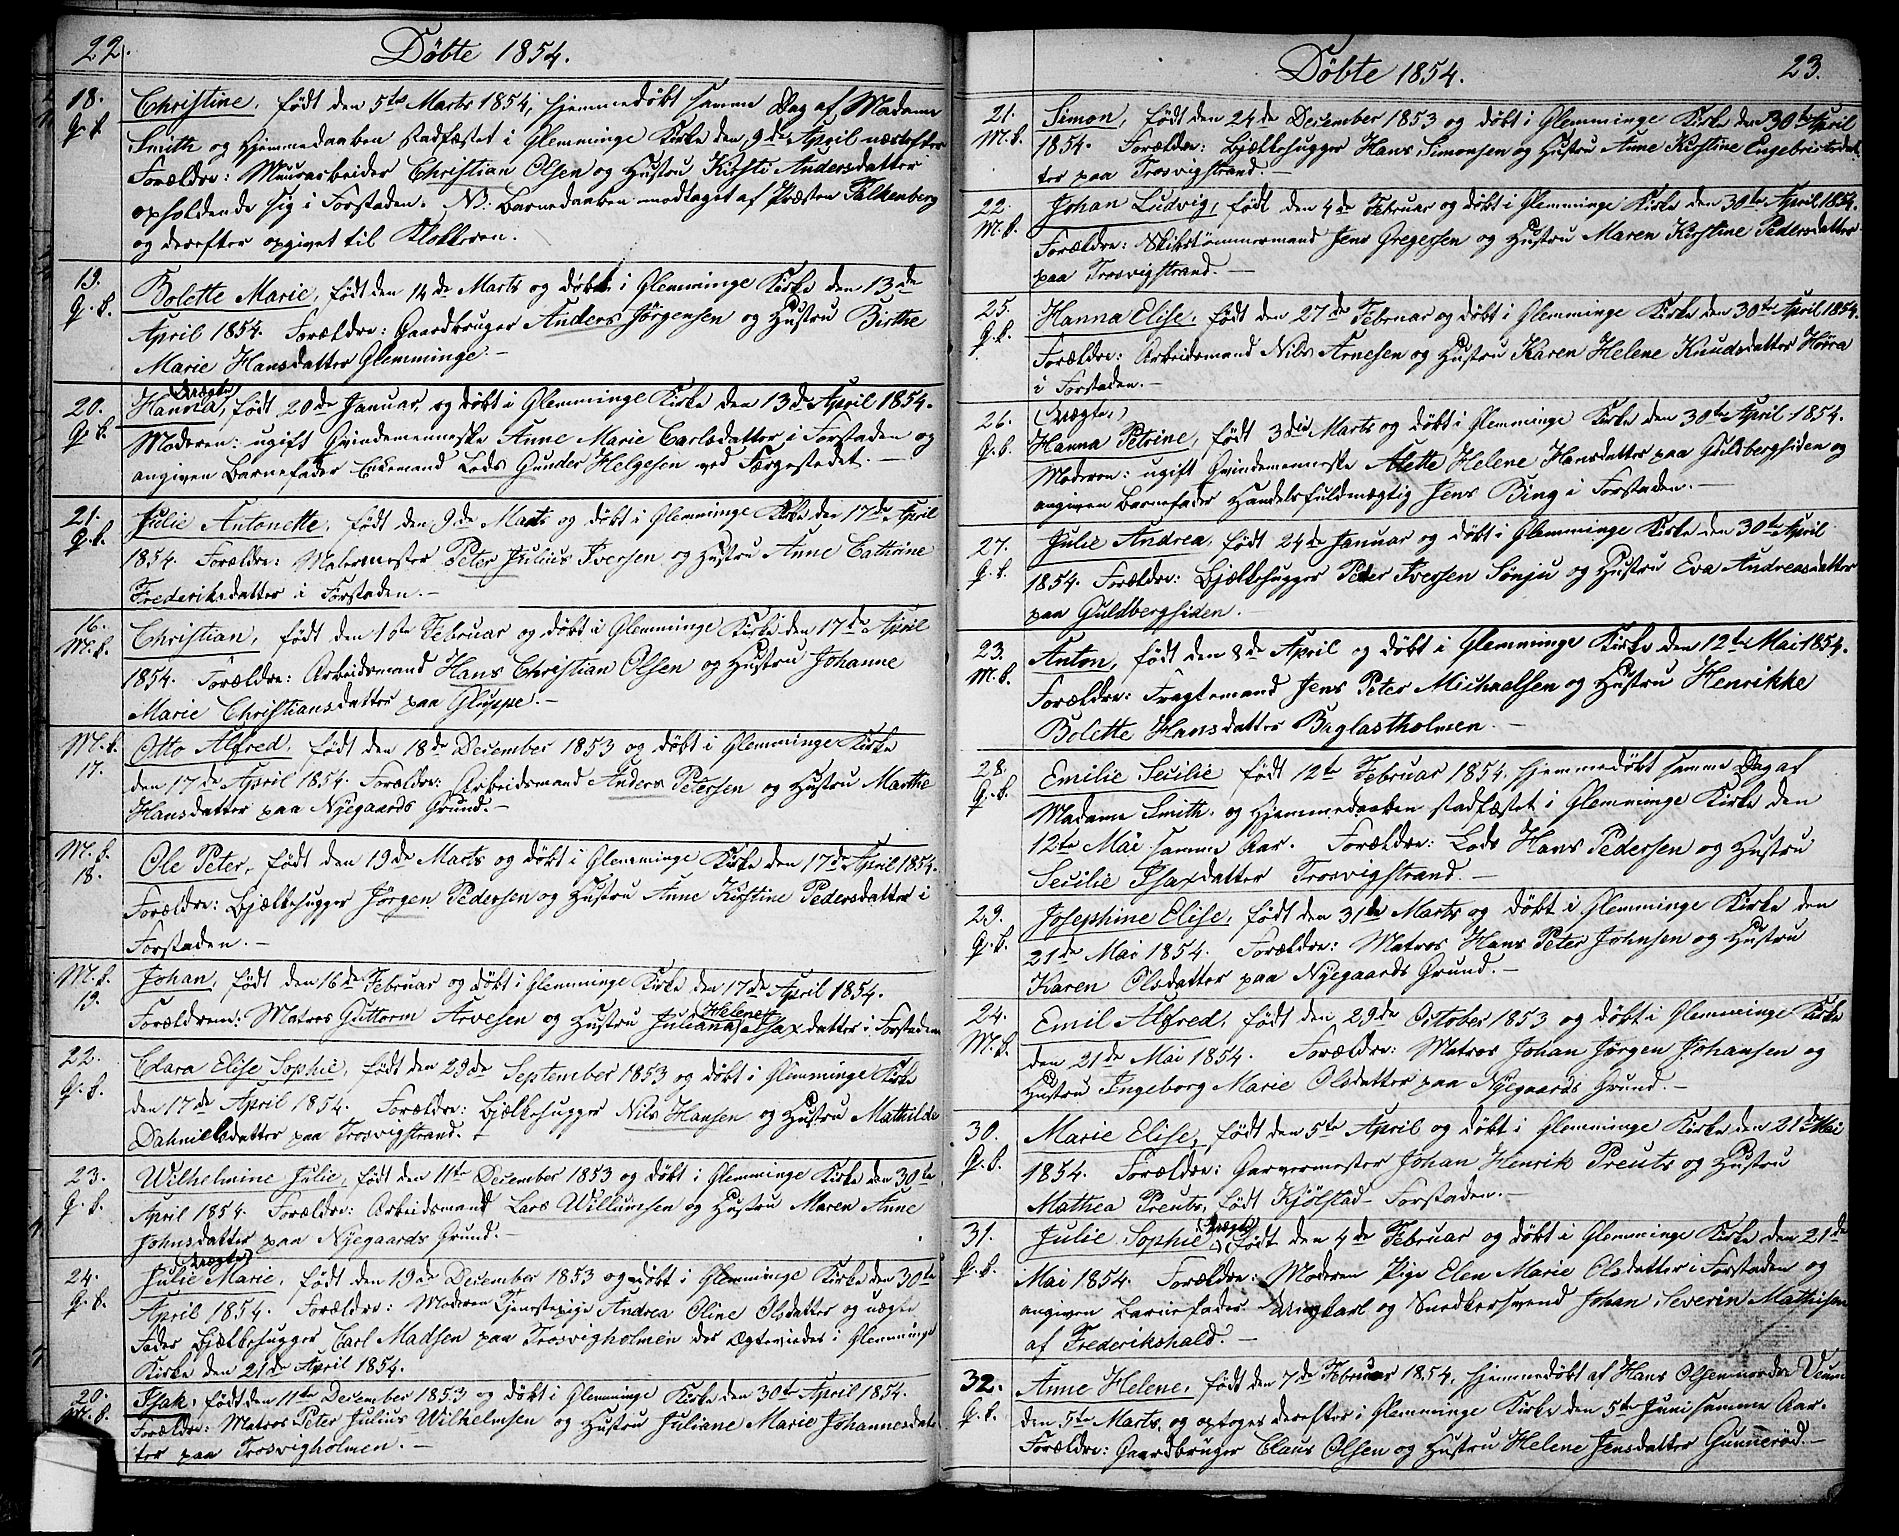 22.
Döbte 1854.
18.
Q.k.
Christine, født den 5te Marts 1854, hjemmedøbt samme Dag af Madame
Smith og Hjemmedaaben stadfæstet i Glemminge Kirke den 9de April næstefter
Forældre: Muurarbeider Christian Olsen og Hustru Kirsti Andersdatter
opholdende sig i Forstaden. NB. Barnedaaben modtaget af Præsten Falkenberg
og derefter opgivet til Klokkeren.
19.
Q.k.
Bolette Marie, født den 14de Marts og døbt i Glemminge Kirke den 13de
April 1854. Forældre: Gaardbruger Anders Jørgensen og Hustru Birthe
Marie Hansdatter Glemminge. —
20.
Q.k.
(Uægte)
Hanna, født 20de Januar, og døbt i Glemminge Kirke den 13de April 1854.
Moderen: ugift Qvindemenneske Anne Marie Carlsdatter i Forstaden og
angiven Barnefader Enkemand Lods Gunder Helgesen ved Færgestedet. —
21.
Q.k.
Julie Antonette, født den 9de Marts og døbt i Glemminge Kirke den 17de April
1854. Forældre: Malermester Peter Julius Iversen og Hustru Anne Cathrine
Frederiksdatter i Forstaden. —
16.
M.k.
Christian, født den 10de Februar og døbt i Glemminge Kirke den 17de April
1854. Forældre: Arbeidsmand Hans Christian Olsen og Hustru Johanne
Marie Christiansdatter paa Gluppe. —
M.k.
17.
Otto Alfred, født den 18de December 1853 og døbt i Glemminge Kirke
den 17de April 1854. Forældre: Arbeidsmand Anders Petersen og Hustru Marthe
Hansdatter paa Nyegaards Grund. —
M.k.
18.
Ole Peter, født den 19de Marts og døbt i Glemminge Kirke den 17de April 1854.
Forældre: Bjælkehugger Jørgen Pedersen og Hustru Anne Kirstine Pedersdatter i
Forstaden. —
M.k.
19.
Johan, født den 16de Februar og døbt i Glemminge Kirke den 17de April 1854.
Forældren: Matros Guttorm Arvesen og Hustru Juliana Helene Isaxdatter i Forstaden
22.
Q.k.
Clara Elise Sophie, født den 29de September 1853 og døbt i Glemminge Kirke
den 17de April 1854. Forældre: Bjælkehugger Nils Hansen og Hustru Mathilde
Dahnielsdatter paa Trosvigstrand. —
23.
Q.k.
Wilhelmine Julie, født den 11te December 1853 og døbt i Glemminge Kirke den 30te
April 1854. Forældre: Arbeidsmand Lars Willumsen og Hustru Maren Anne
Johnsdatter paa Nyegaards Grund. —
24.
Q.k.
(Uægte)
Julie Marie, født den 19de December 1853 og døbt i Glemminge Kirke den 30te
April 1854. Forældre: Moderen Tjenestepige Andrea Oline Olsdatter og uægte
Fader Bjælkehugger Carl Madsen paa Trosvigholmen der Ægteviedes i Glemminge
Kirke den 21de April 1854.
20.
M.k.
Isak, født den 11te December 1853 og døbt i Glemminge Kirke den 30te April 1854.
Forældre: Matros Peter Julius Wilhelmsen og Hustru Juliane Marie Johannesdat-
ter paa Trosvigholmen. —
Döbte 1854.
23.
21.
M.k.
Simon, født den 24de December 1853 og døbt i Glemminge Kirke den 30te April
1854. Forældre: Bjælkehugger Hans Simonsen og Hustru Anne Kirstine Engebretsdat-
ter paa Trosvigstrand. —
22.
M.k.
Johan Ludvig, født den 4de Februar og døbt i Glemminge Kirke den 30te April 1854.
Forældre: Skibstømmermand Jens Gregersen og Hustru Maren Kirstine Pedersdatter
paa Trosvigstrand. —
25.
Q.k.
Hanna Elise, født den 27de Februar og døbt i Glemminge Kirke den 30te April 1854.
Forældre: Arbeidsmand Nils Arnesen og Hustru Karen Helene Knudsdatter Hørra
i Forstaden. —
26.
Q.k.
(Uægte)
Hanna Petrine, født 3die Marts og døbt i Glemminge Kirke den 30te April 1854.
Moderen: ugift Qvindemenneske Alette Helene Hansdatter paa Guldbergsiden og
angiven Barnefader Handelsfuldmægtig Jens Bing i Forstaden. —
27.
Q.k.
Julie Andrea, født 24de Januar og døbt i Glemminge Kirke den 30te April
1854. Forældre: Bjælkehugger Peder Iversen Sønju og Hustru Eva Andreasdatter
paa Guldbergsiden. —
23.
M.k.
Anton, født den 8de April og døbt i Glemminge Kirke den 12te Mai 1854.
Forældre: Fragtemand Jens Peter Michaelsen og Hustru Henrikke
Bolette Hansdatter Baglastholmen. —
28.
Q.k.
Emilie Secilie født 12te Februar 1854, hjemmedøbt samme Dag af
Madame Smith. og Hjemmedaaben stadfæstet i Glemminge Kirke den
12te Mai samme Aar. Forældre: Lods Hans Pedersen og Hustru
Secilie Isaxdatter Trosvigstrand. —
29.
Q.k.
Josephine Elise, født den 31te Marts og døbt i Glemminge Kirke den
21de Mai 1854. Forældre: Matros Hans Peter Johnsen og Hustru
Karen Olsdatter paa Nyegaards Grund. —
24.
M.k.
Emil Alfred, født den 29de October 1853 og døbt i Glemminge Kirke
den 21de Mai 1854. Forældre: Matros Johan Jørgen Johansen og
Hustru Ingeborg Marie Olsdatter paa Nyegaards Grund. —
30.
Q.k.
Marie Elise, født den 5te April og døbt i Glemminge Kirke den 21de Mai
1854. Forældre: Garvermester Johan Henrik Preuts og Hustru
Mathea Preuts, født Kjølstad Forstaden. —
31.
Q.k.
Julie Sophie (Uægte), født den 4de Februar og døbt i Glemminge Kirke den 21de
Mai 1854. Forældre: Moderen Pige Elen Marie Olsdatter i Forstaden og
angiven Barnefader Ungkarl og Snedkersvend Johan Severin Mathisen
af Frederikshald. —
32.
Q.k.
Anne Helene, født den 7de Februar 1854, hjemmedøbt af Hans Olsen nordre Veum
den 5te Marts, og optoges derefter i Glemminge Kirke den 5te Juni samme Aar.
Forældre: Gaardbruger Claus Olsen og Hustru Helene Jensdatter Gunnerød. —